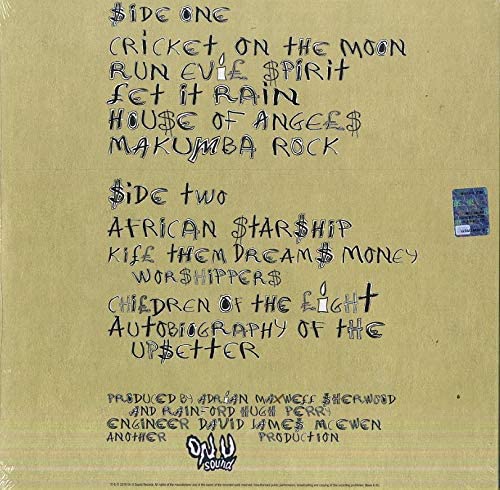 $IDE ONE
CRICKET, ON THE MOON
RUN EVI£ $PIRIT
£ET IT RAIN
HOU$E OF ANGE£$
MAKUMBA ROCK
$IDE TWO
AFRICAN $TAR$HIP
KI££ THEM DREAM$ MONEY
WOR$HIPPER$
CHI£DREN OF THE £IGHT
AUTOBIOGRAPHY OF THE
UP$ETTER
PRODUCED BY ADRIAN MAXWE££ $HERWOOD
AND RAIN-FORD HUGH PERRY
ENGINEER DAVID JAME$ MCEWEN
ANOTHER ON.U SOUND PRODUCTION